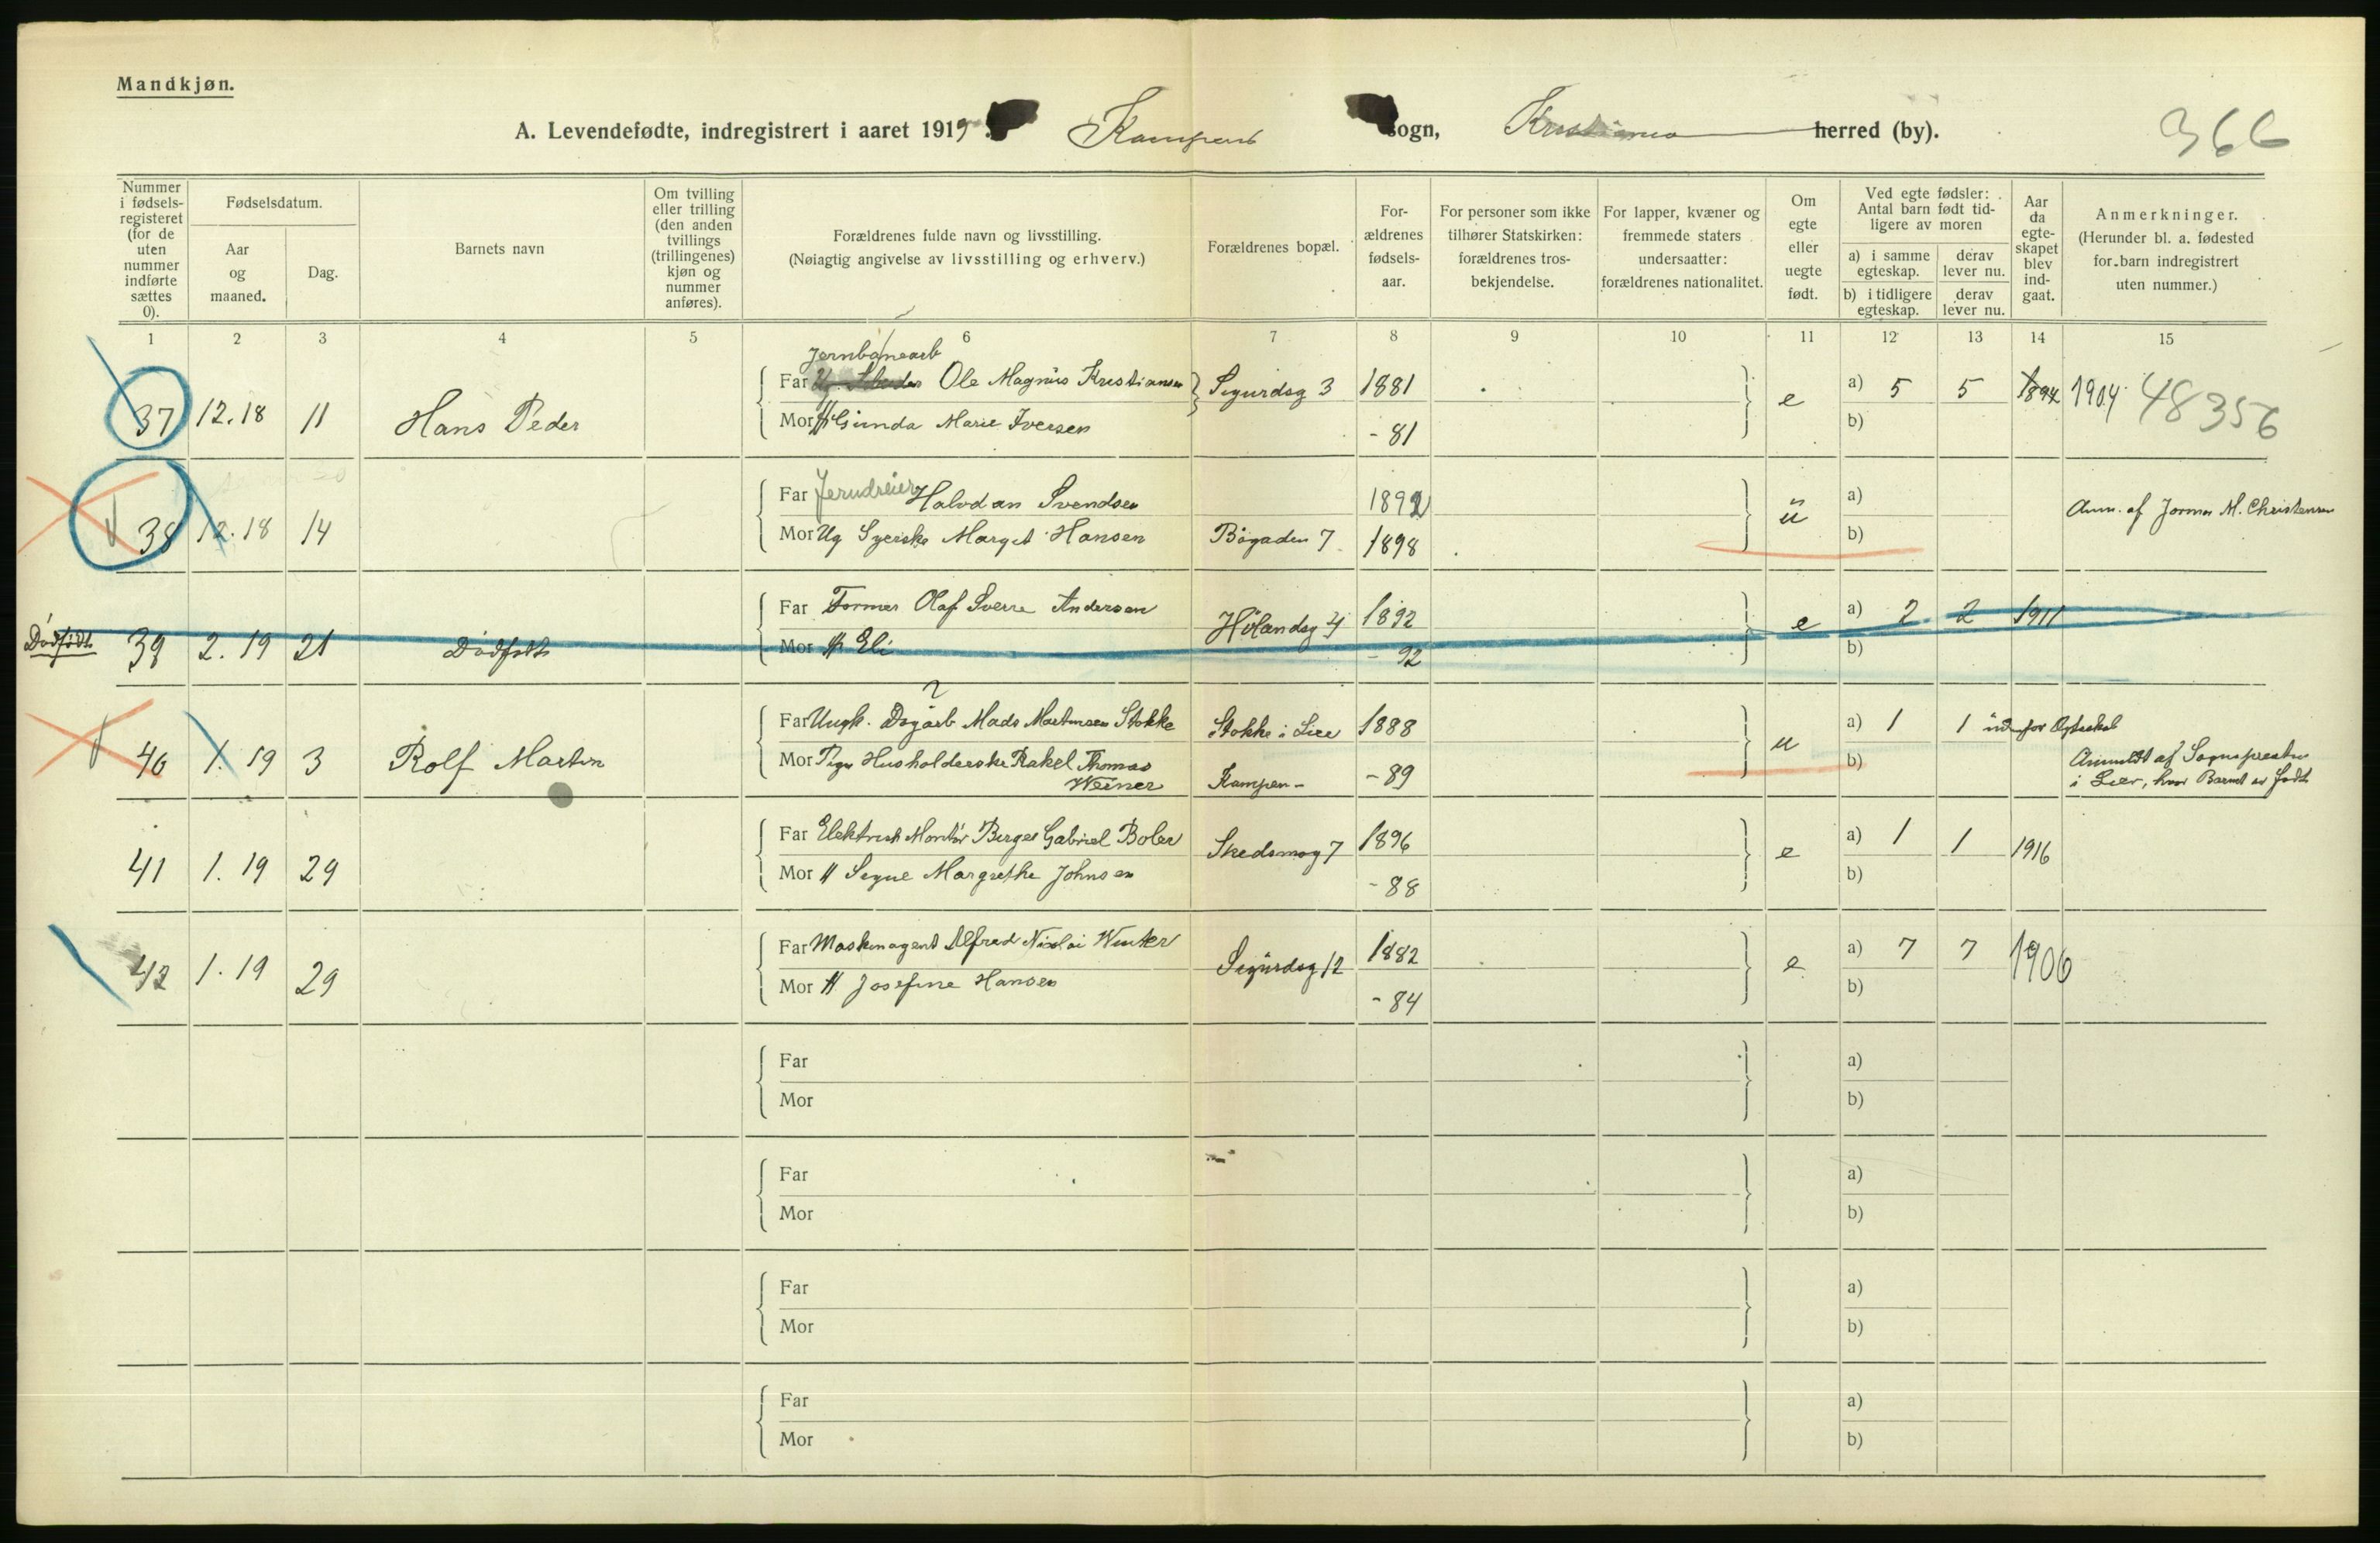 Mandkjøn.
A. Levendefødte, indregistrert i aaret 1919 Kampens sogn, Kristiania herred (by).
366
Nummer i fødselsregisteret (for de uten nummer indførte sættes 0).
Fødselsdatum.
Aar og maaned.
Dag.
Barnets navn
Om tvilling eller trilling (den anden tvillings (trillingenes) kjøn og nummer anføres).
Forældrenes fulde navn og livsstilling.
(Nøiagtig angivelse av livsstilling og erhverv.)
Forældrenes bopæl.
Forældrenes fødselsaar.
For personer som ikke tilhører Statskirken: forældrenes trosbekjendelse.
For lapper, kvæner og fremmede staters undersaatter: forældrenes nationalitet.
Om egte eller uegte født.
Ved egte fødsler: Antal barn født tidligere av moren
a) i samme egteskap.
derav lever nu.
b) i tidligere egteskap.
derav lever nu.
Aar da egteskapet blev indgaat.
Anmerkninger.
(Herunder bl. a. fødested for barn indregistrert uten nummer.)
1 2 3 4 5 6 7 8 9 10 11 12 13 14 15
Jernbanearb
37 12.18 11 Hans Peder Far Ole Magnus Kristiansen Sigurdsg 3 1881 e a) 5 5 1894 1904 48356
Mor Gunda Marie Iversen - 81 b)
38 12.18 14 Far Halvdan Svendsen 1892 u a) Anm. af Jormor M. Christensen
Mor Ug Syerske Margit Hansen Bögaden 7 1898 b)
Dödfödt 39 2.19 21 Dödfödt Far Former Olaf Sverre Andersen Hölandsg 4 1892 e a) 2 2 1911
Mor Eli - 92 b)
?
40 1.19 3 Rolf Martin Far Ungk. Dagarb Mads Martinsen Stokke Stokke i Lier 1888 u a) 1 1 udenfor Egteskab
Mor Pige Husholderske Rakel Thomas Weiner Kampen - - 89 b) Anmeldt af Sognepresten
i Lier, hvor Barnet er födt
41 1.19 29 Far Elektrisk Montör Birger Gabriel Boler Skedsmog 7 1896 e a) 1 1 1916
Mor Signe Margrethe Johnsen - 88 b)
42 1.19 29 Far Maskinagent Alfred Nicolai Winter Sigurdsg 12 1882 e a) 7 7 1906
Mor Josefine Hansen - 84 b)
Far a)
Mor b)
Far a)
Mor b)
Far a)
Mor b)
Far a)
Mor b)